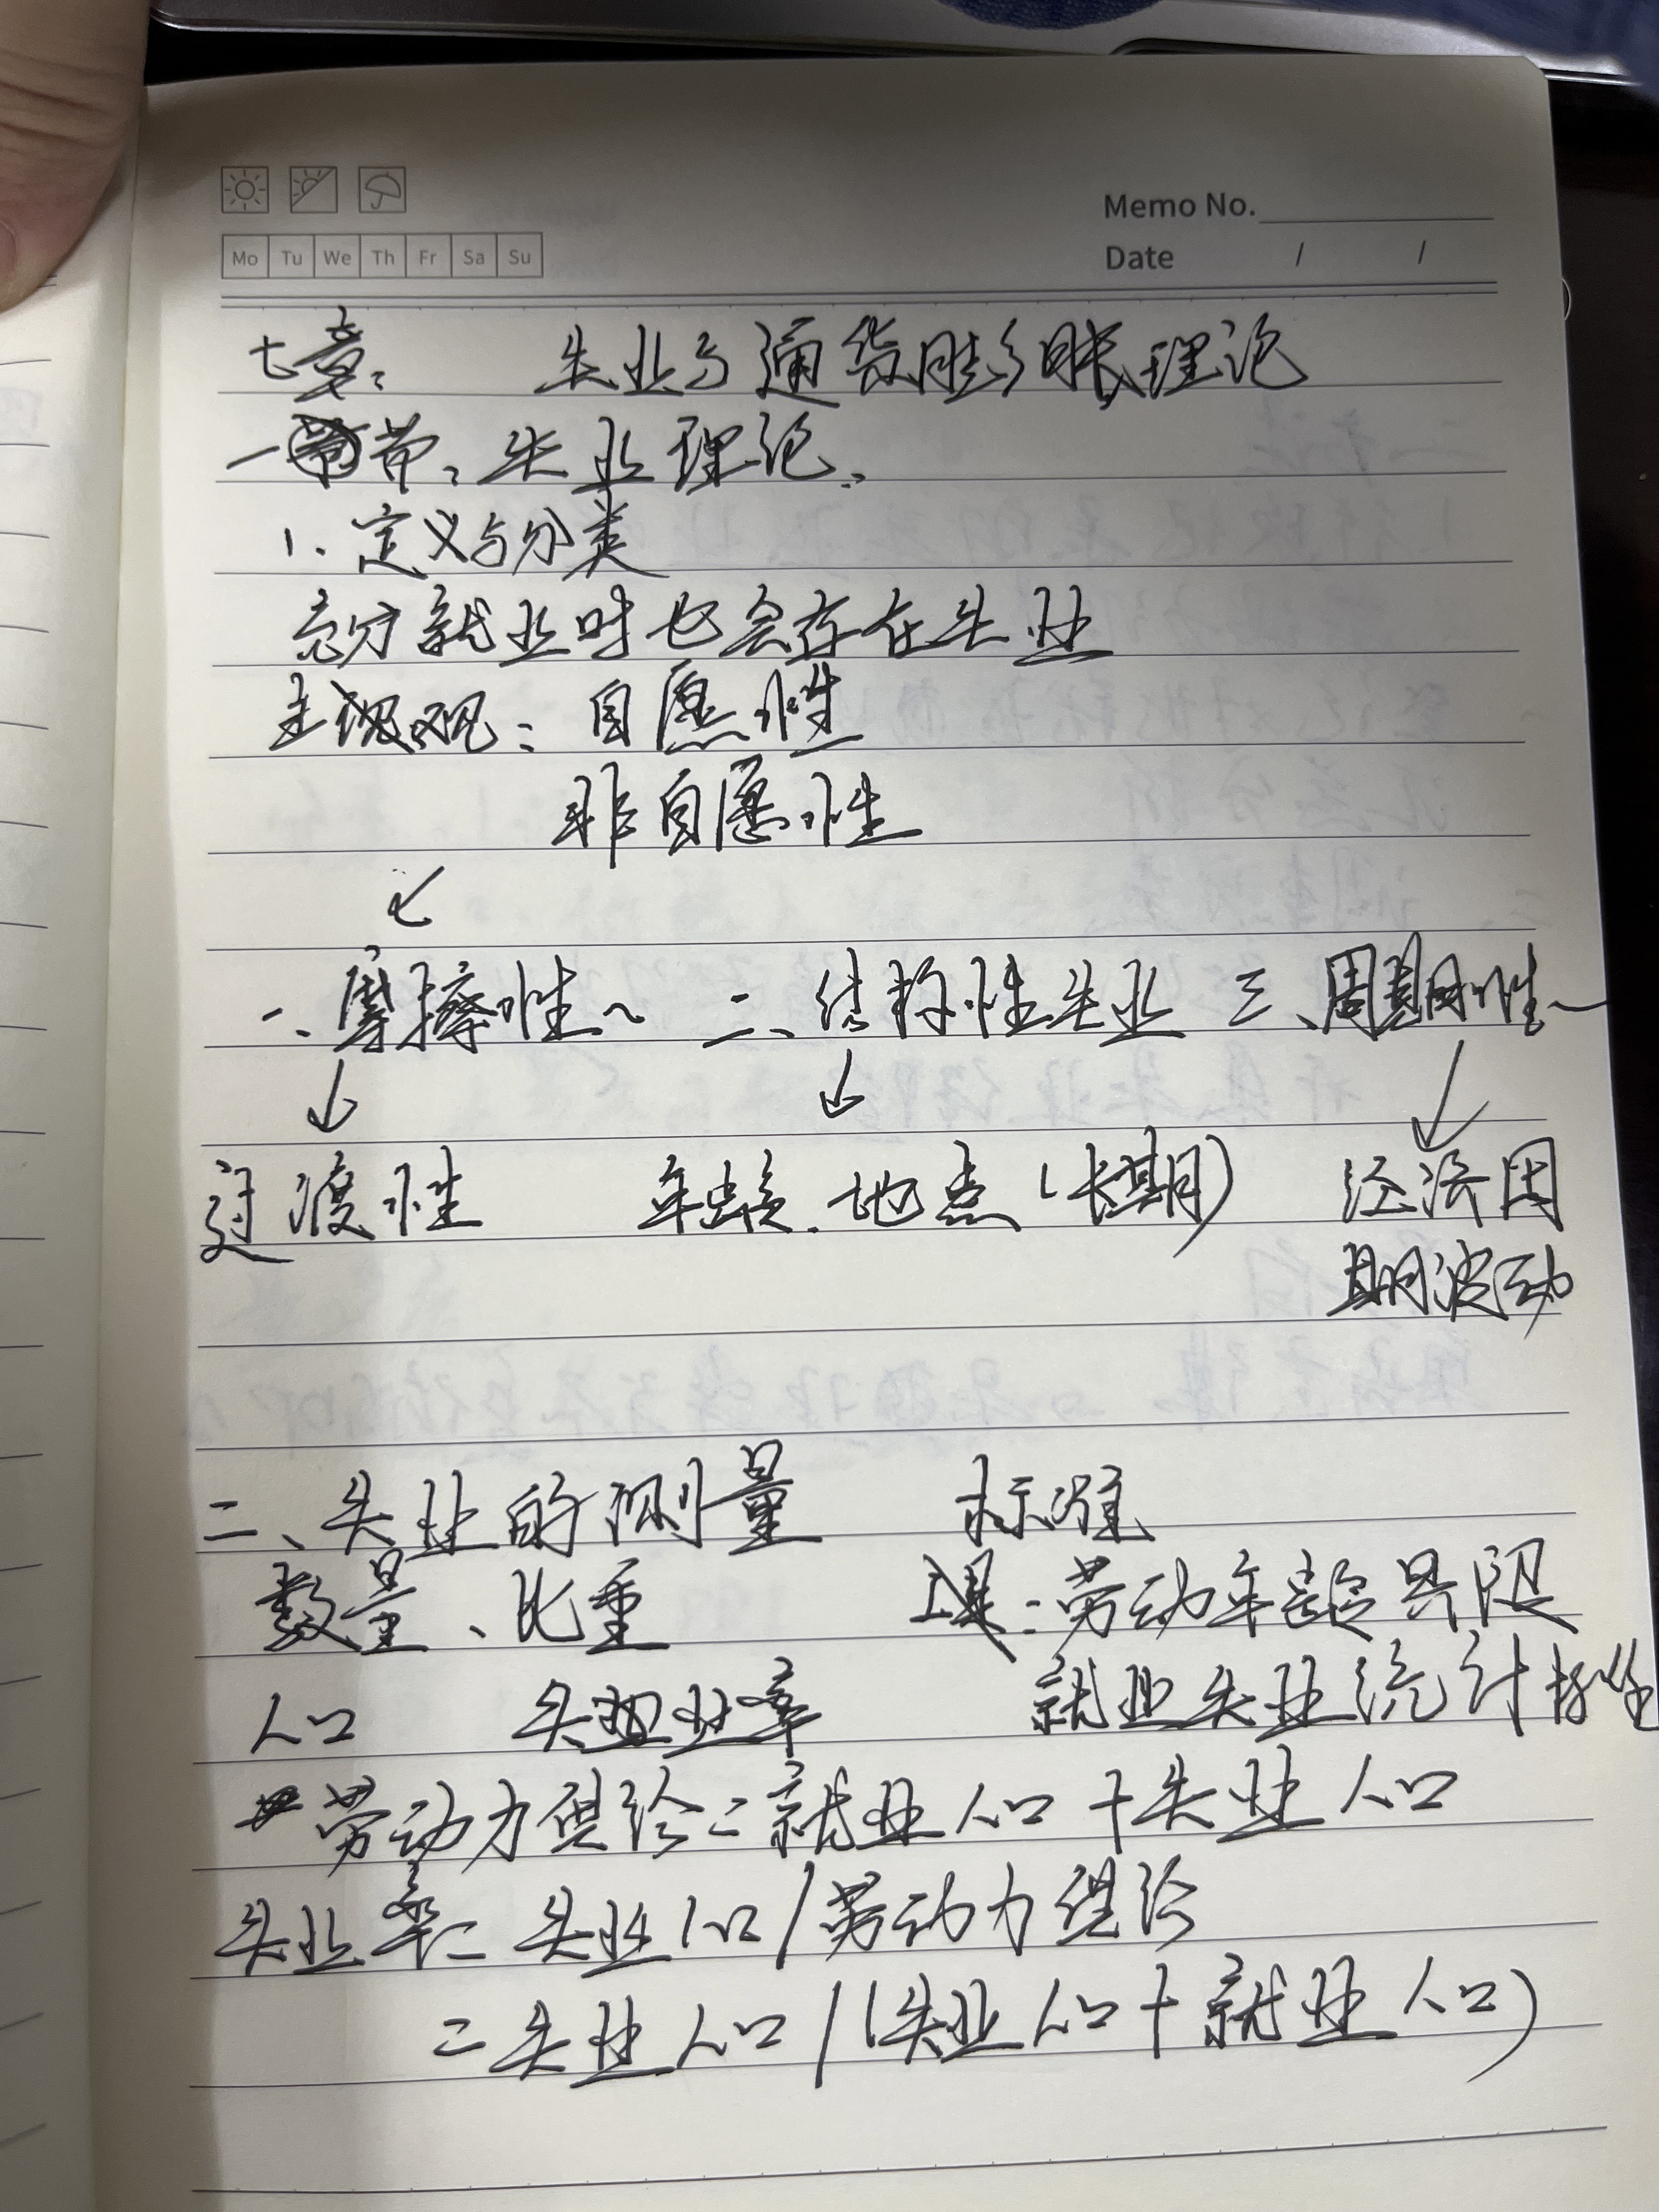 Memo No.
Mo Tu We Th Fr Sa Su
Date / /
七章、 失业与通货膨胀理论
一节、失业理论、
1、定义与分类
充分就业时也会存在失业
主观：自愿性
非自愿性
↙
一、摩擦性~ 二、结构性失业 三、周期性~
↓ ↓ ↙
过渡性 年龄、地点（长期） 经济周
期波动
二、失业的测量 标准
数量、比重 ：劳动年龄界限
人口 失业率 就业失业统计标准
劳动力供给=就业人口+失业人口
失业率=失业人口/劳动力供给
=失业人口/(失业人口+就业人口)